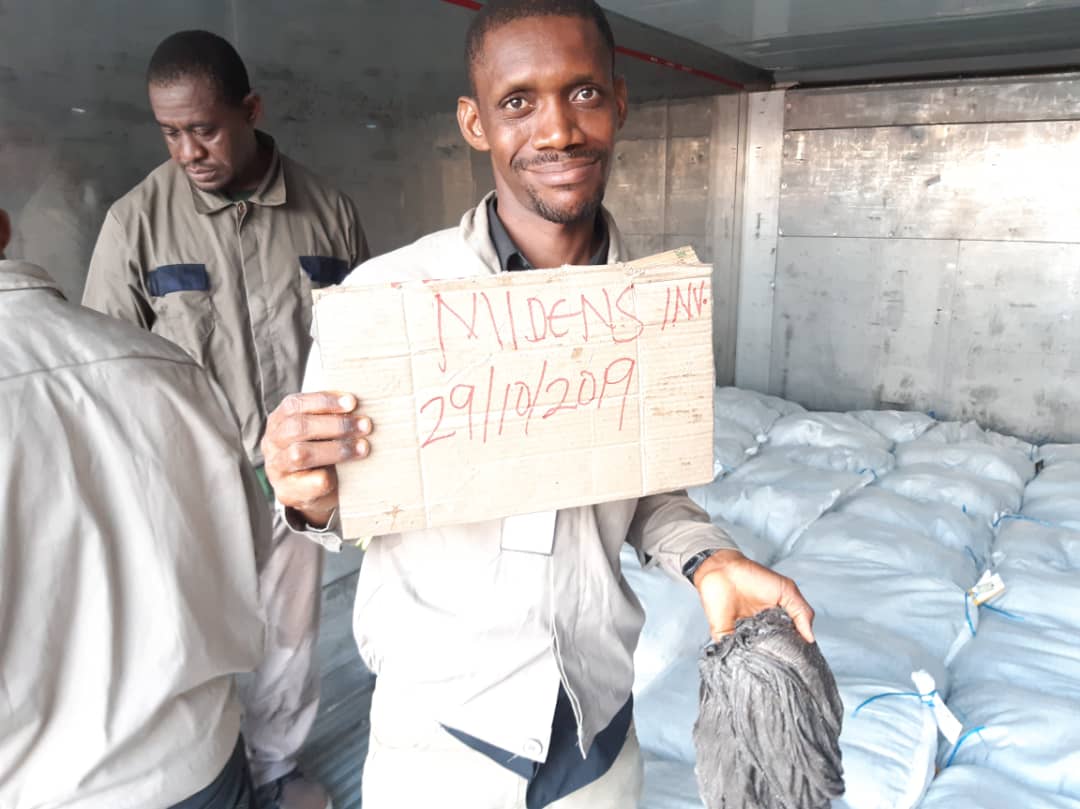 MIDENS INV.
29/10/2019